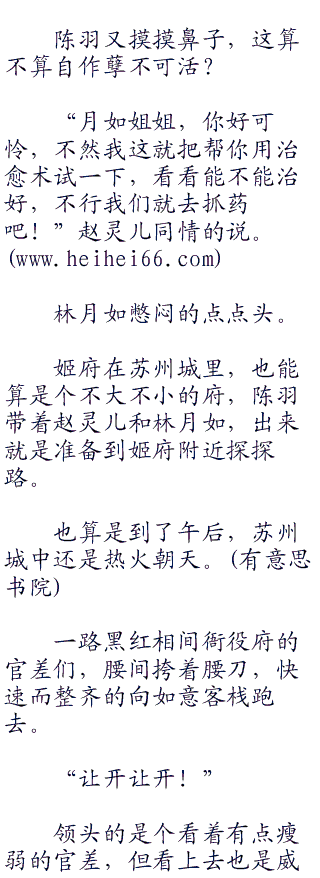 陈羽又摸摸鼻子，这算
不算自作孽不可活？
“月如姐姐，你好可
怜，不然我这就把帮你用治
愈术试一下，看看能不能治
好，不行我们就去抓药
吧！”赵灵儿同情的说。
(www.heihei66.com)
林月如憋闷的点点头。
姬府在苏州城里，也能
算是个不大不小的府，陈羽
带着赵灵儿和林月如，出来
就是准备到姬府附近探探
路。
也算是到了午后，苏州
城中还是热火朝天。(有意思
书院)
一路黑红相间衙役府的
官差们，腰间挎着腰刀，快
速而整齐的向如意客栈跑
去。
“让开让开！”
领头的是个看着有点瘦
弱的官差，但看上去也是威